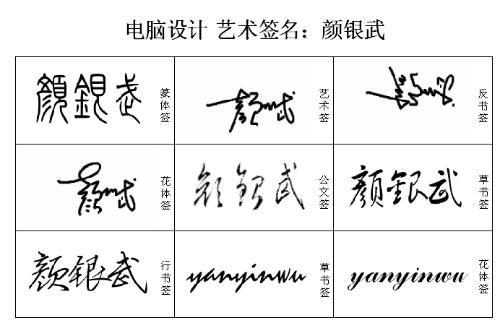 电脑设计 艺术签名：颜银武
顏銀武 篆体签
颜银武 艺术签
反书签
颜银武 花体签
颜银武 公文签
颜银武 草书签
颜银武 行书签
yanyinwu 草书签
yanyinwu 花体签